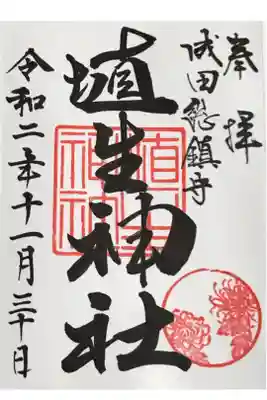 奉拝
成田総鎮守
埴生神社
令和二年十一月三十日